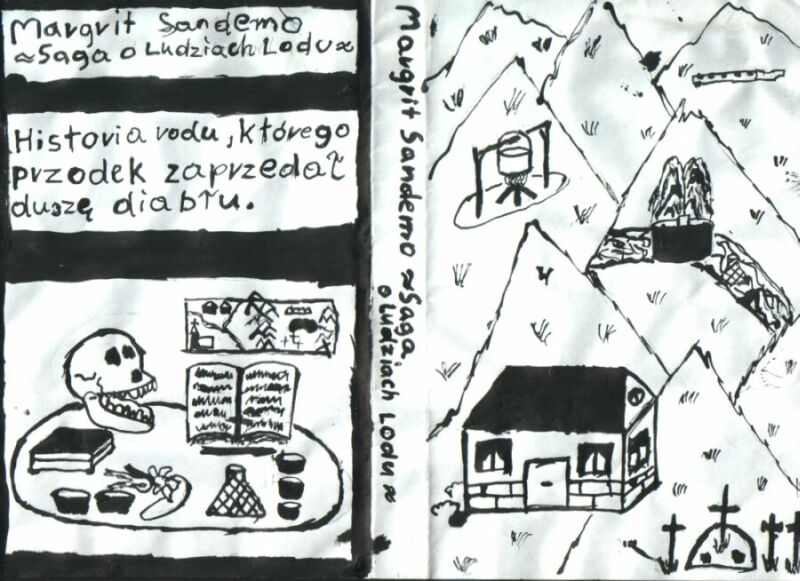 Margrit Sandemo
≈Saga o Ludziach Lodu≈
Historia rodu, którego
przodek zaprzedał
duszę diabłu.
Margrit Sandemo ≈Saga
o Ludziach Lodu≈